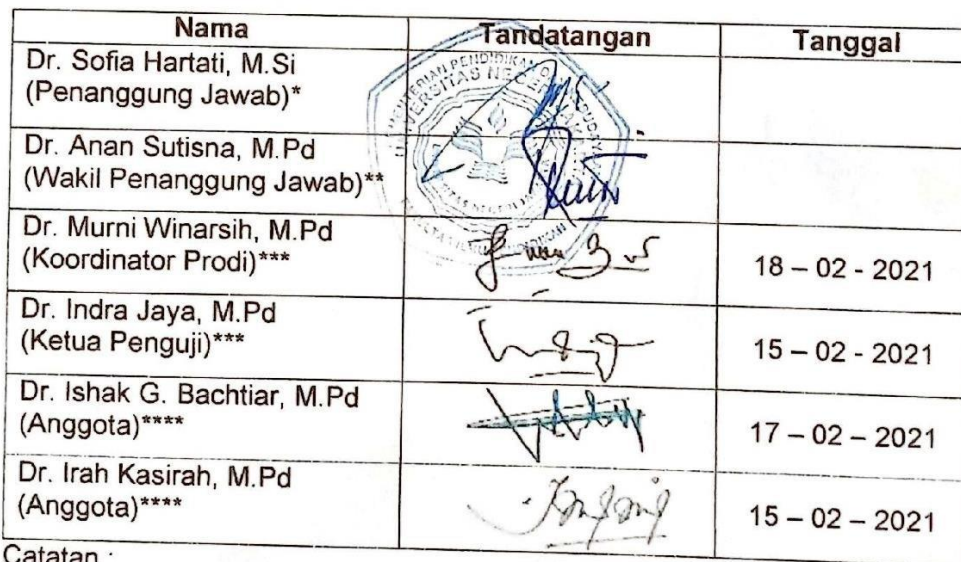 Nama Tandatangan Tanggal
Dr. Sofia Hartati, M.Si
(Penanggung Jawab)*
Dr. Anan Sutisna, M.Pd
(Wakil Penanggung Jawab)**
Dr. Murni Winarsih, M.Pd
(Koordinator Prodi)*** 18 – 02 - 2021
Dr. Indra Jaya, M.Pd
(Ketua Penguji)*** 15 – 02 - 2021
Dr. Ishak G. Bachtiar, M.Pd
(Anggota)**** 17 – 02 – 2021
Dr. Irah Kasirah, M.Pd
(Anggota)**** 15 – 02 – 2021
Catatan :